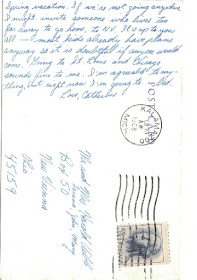 Spring vacation. If we're not going anywhere
I might invite someone who lives too
far away to go home, to NV. It's up to you
all – most kids already have plans
anyway so it is doubtful if anyone would
come. Going to St. Louis and Chicago
sounds fine to me. I'm agreeable to any-
thing, but right now I'm going to – bed.
Love, Catherine
Mr. and Mrs.
Box 50
New Vienna
Ohio
45159
KALAMAZOO
MICH